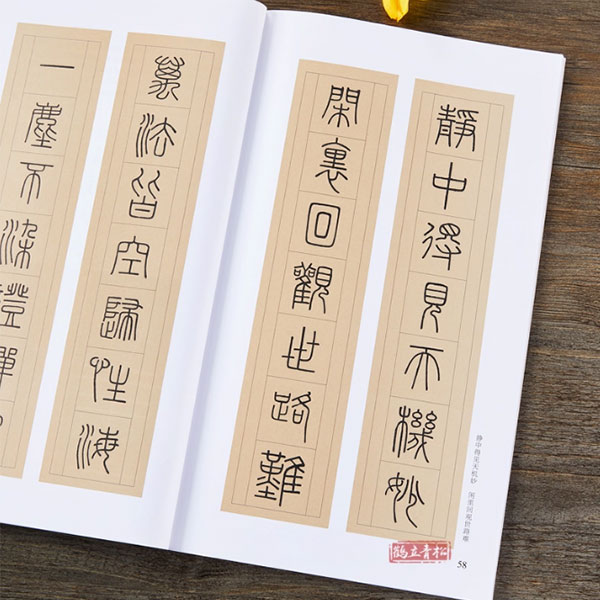 靜中得見天機妙
閑裏回觀世路難
静中得见天机妙 闲里回观世路难
鹤立青松
58
萬法皆空歸性海
一塵不染證禪